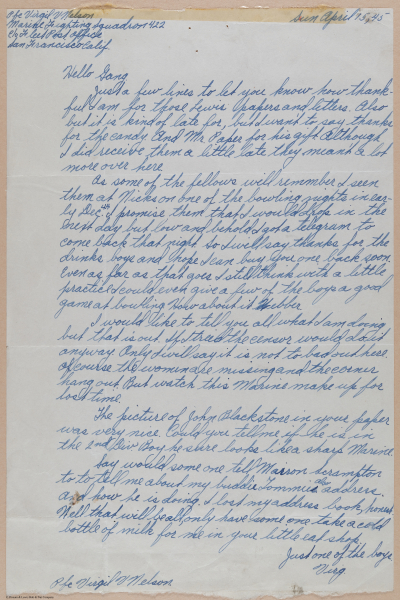 Pfc Virgil V Nelson
Marine Fighting Squadron 422
C/o Fleet Post Office
San Francisco Calif.
Sun April 15, 45
Hello Gang
Just a few lines to let you know how thank-
ful I am for those Lewis papers and letters. Also
but it is kind of late for, but I want to say thanks
for the candy and Mr. Paper for his gift. Although
I did receive them a little late they meant a lot
more over here
As some of the fellows will remember I seen
them at Nicks on one of the bowling nights in ear-
ly Dec. I promise them that I would drop in the
next day but low and behold I got a telegram to
come back that night so I will say thanks for the
drinks boys and hope I can buy you one back soon.
Even as far as that goes I still think with a little
practice I could even give a few of the boys a good
game at bowling. How about it
I would like to tell you all what I am doing
but that is out. If I tried the censor would cut it
anyway. Only I will say it is not to bad out here
of course the women are missing and the corner
hang out. But watch this Marine make up for
lost time.
The picture of John Blackstone in your paper
was very nice. Could you tell me if he is in
the 2nd Div Boy he sure looks like a sharp Marine
Say would some one tell Marron Scrampton
to to tell me about my buddie Tommie address.
And how he is doing. I lost my address book, honest
Well that will be all only have some one take a cold
bottle of milk for me in your little eat shop.
Just one of the boys
Virg
Pfc Virgil V Nelson